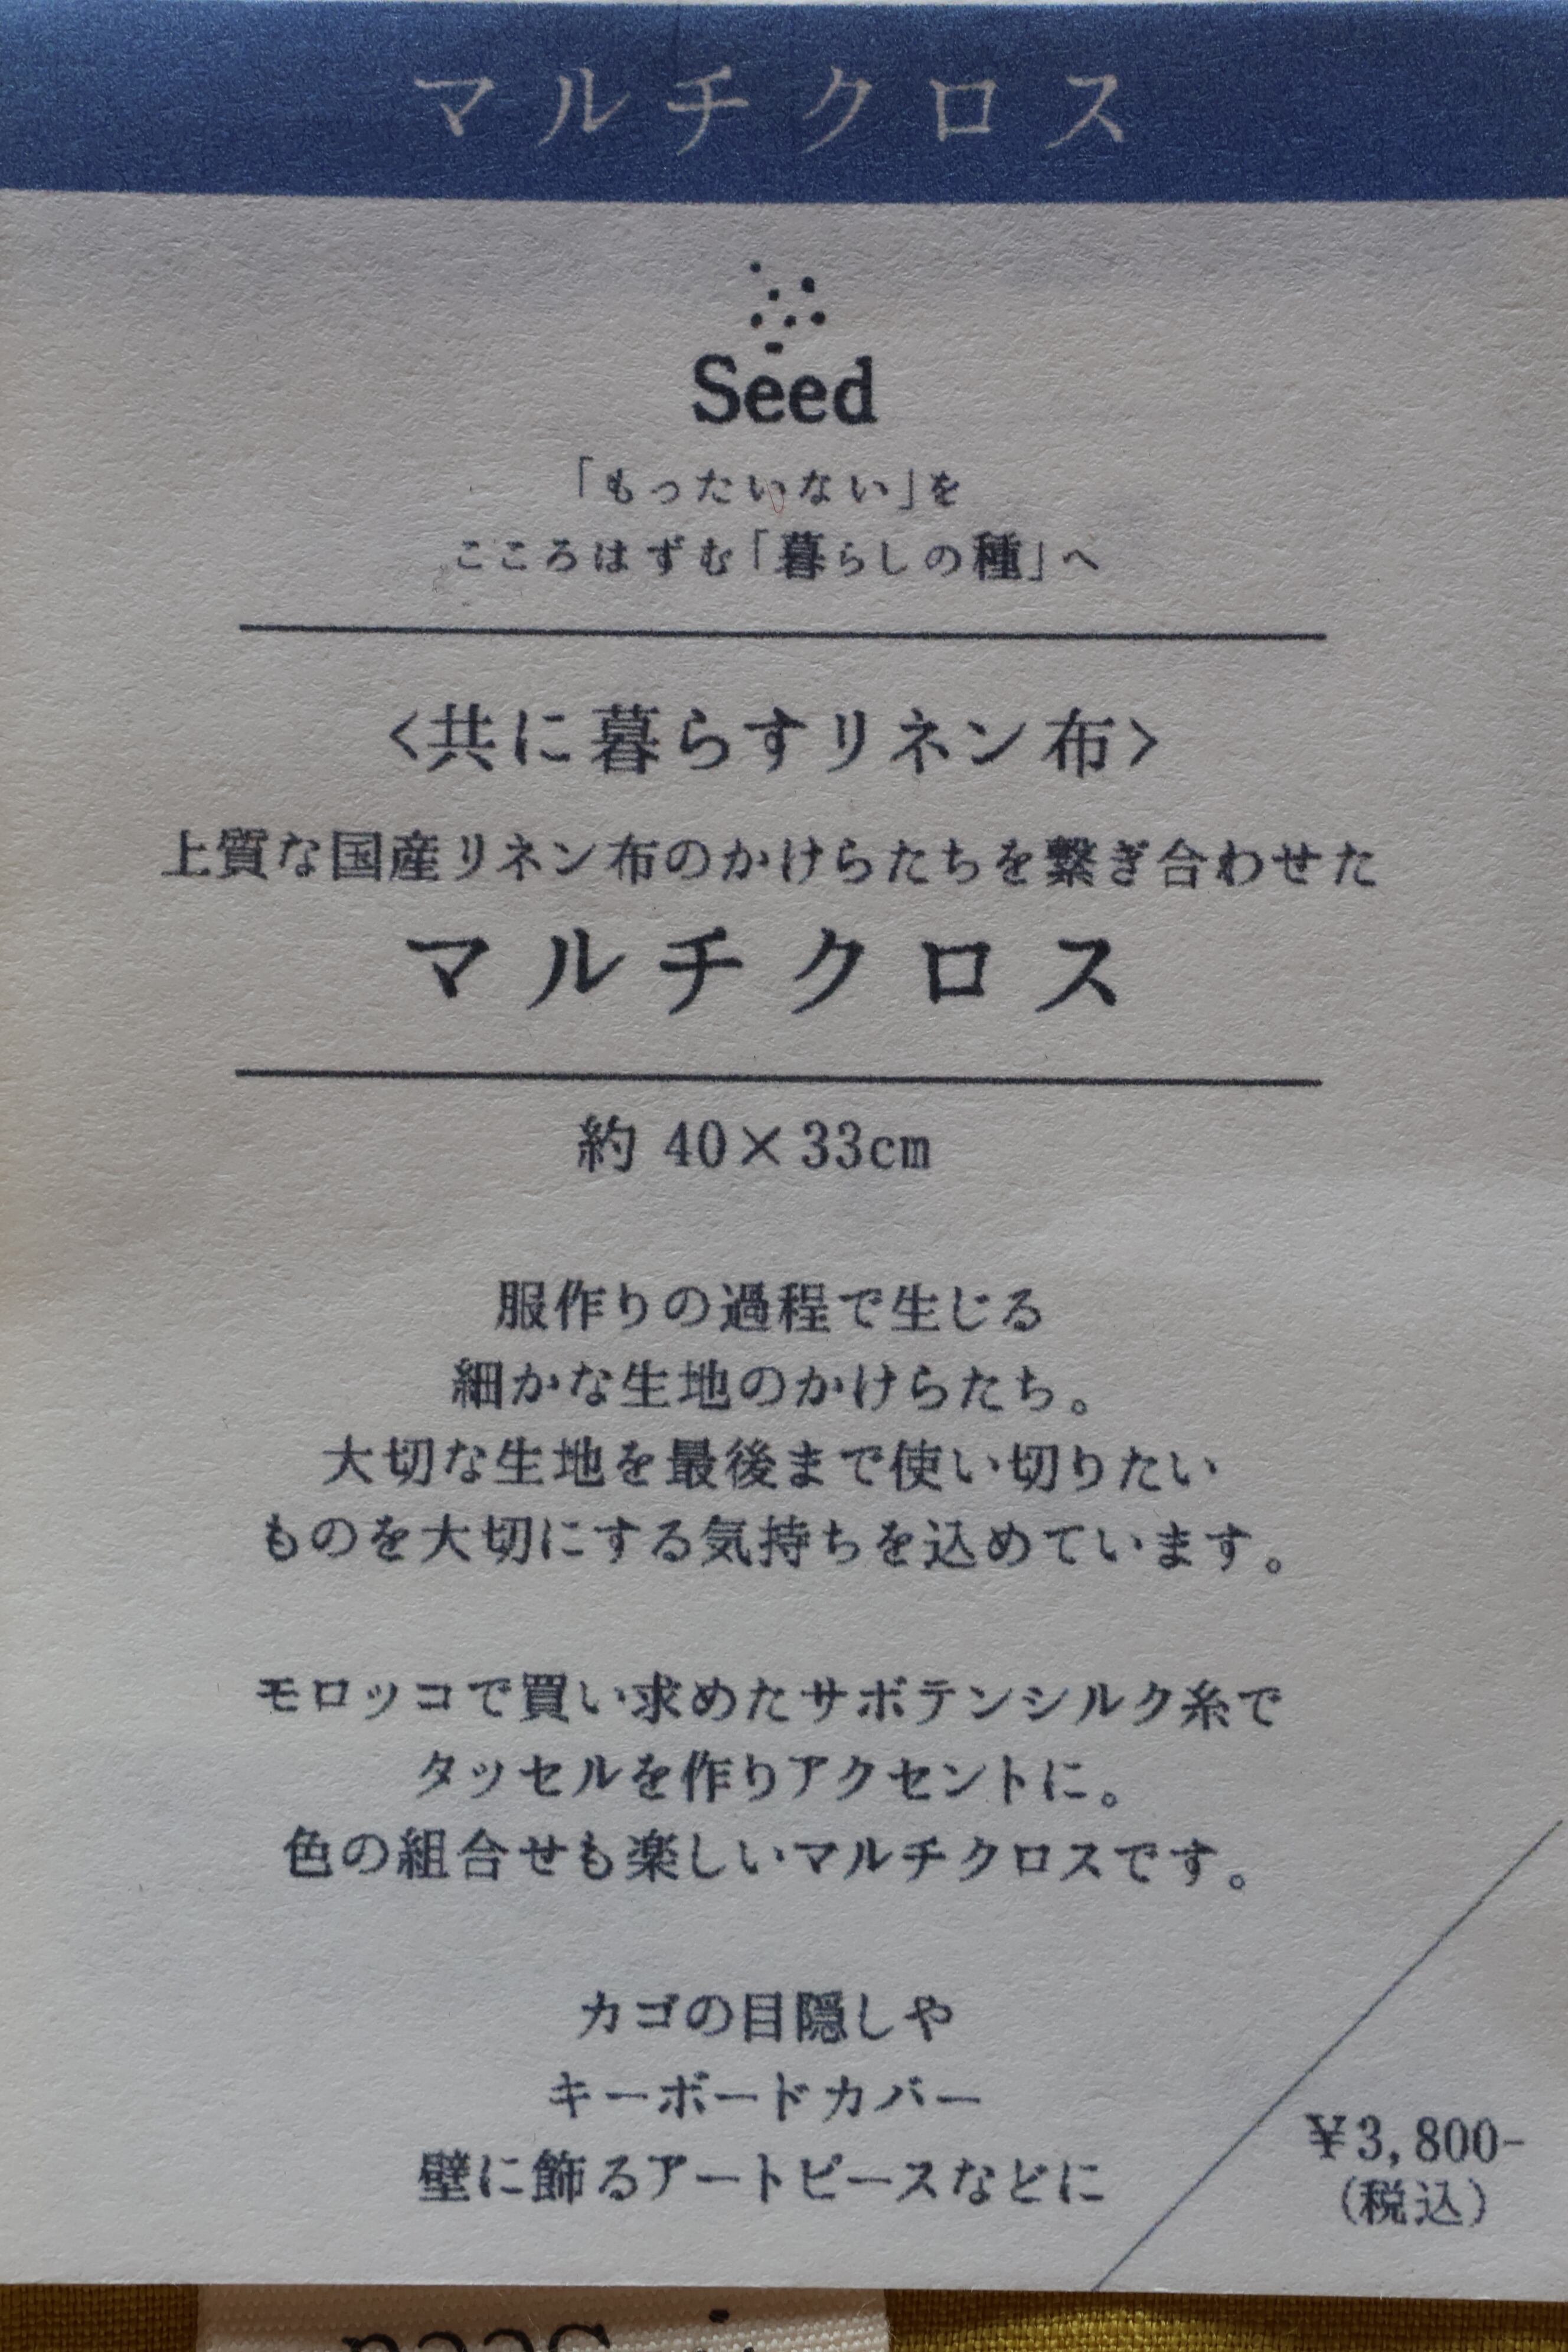 マルチクロス
Seed
「もったいない」を
こころはずむ「暮らしの種」へ
〈共に暮らすリネン布〉
上質な国産リネン布のかけらたちを繋ぎ合わせた
マルチクロス
約 40×33cm
服作りの過程で生じる
細かな生地のかけらたち。
大切な生地を最後まで使い切りたい
ものを大切にする気持ちを込めています。
モロッコで買い求めたサボテンシルク糸で
タッセルを作りアクセントに。
色の組合せも楽しいマルチクロスです。
カゴの目隠しや
キーボードカバー
壁に飾るアートピースなどに
¥3,800-
(税込)